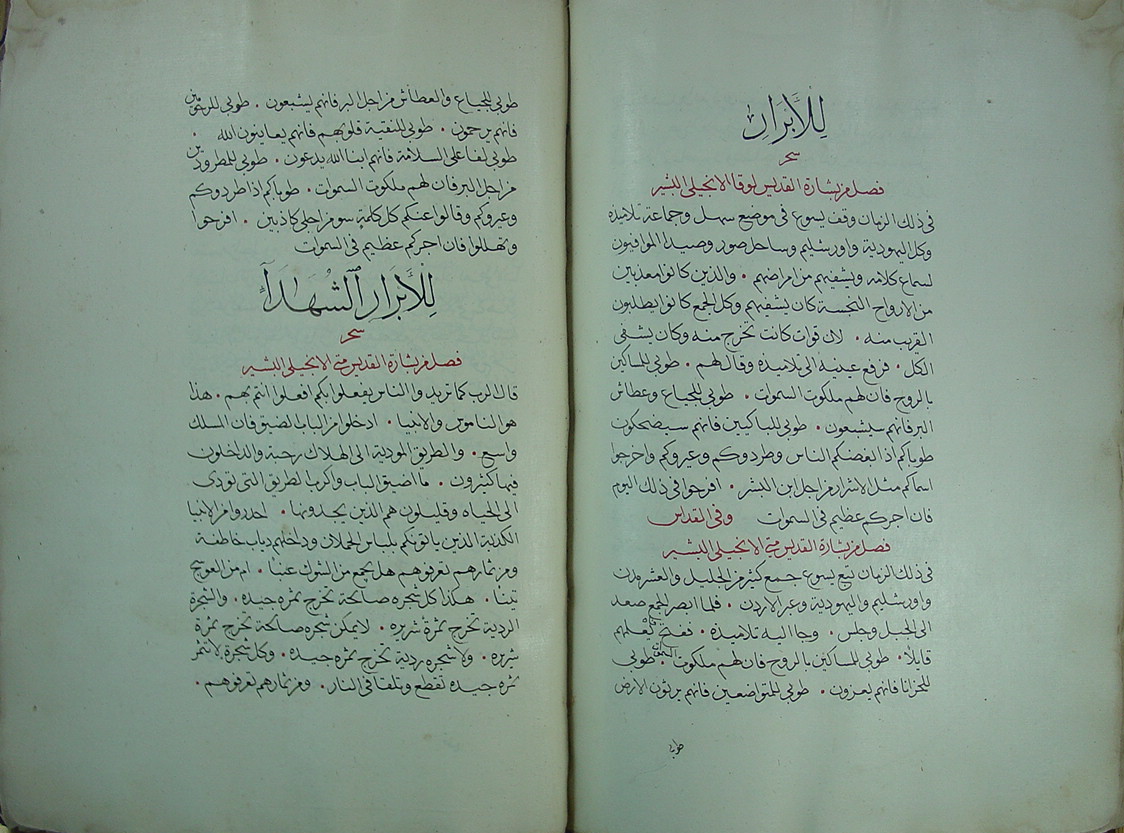 للأبرار
سحر
فصل من بشارة القديس لوقا الانجيلي البشير
في ذلك الزمان وقف يسوع في موضع سهل وجماعة تلاميذه
وكل اليهودية واورشليم وساحل صور وصيدا الموافيون
لسماع كلامه ويشفيهم من امراضهم · والذين كانوا معذبين
من الارواح النجسة كان يشفيهم وكل الجمع كانوا يطلبون
القرب منه · لان قوات كانت تخرج منه وكان يشفى
الكل · فرفع عينيه الى تلاميذه وقال لهم · طوبى للمساكين
بالروح فان لهم ملكوت السموات · طوبى للجياع وعطاش
البر فانهم سيشبعون · طوبى للباكيين فانهم سيضحكون
طوباكم اذا ابغضكم الناس وطردوكم وعيروكم واخرجوا
اسماكم مثل الاشرار من اجل ابن البشر · افرحوا في ذلك اليوم
فان اجركم عظيم في السموات وفي القداس
فصل من بشارة القديس متى الانجيلي البشير
في ذلك الزمان تبع يسوع جمع كثير من الجليل والعشر مدن
واورشليم واليهودية وعبر الاردن · فلما ابصر الجمع صعد
الى الجبل وجلس · وجا اليه تلاميذه · ففتح يعلمهم
قايلاً · طوبى للمساكين بالروح فان لهم ملكوت السموات · طوبى
للحزانا فانهم يعزون · طوبى للمتواضعين فانهم يرثون الارض
طوبى
طوبى للجياع والعطاش من اجل البر فانهم يشبعون · طوبى للرحومين
فانهم يرحمون · طوبى للنقية قلوبهم فانهم يعاينون الله ·
طوبى لفاعلي السلامة فانهم ابنا الله يدعون · طوبى للمطرودين
من اجل البر فان لهم ملكوت السموات · طوباكم اذا طردوكم
وعيروكم وقالوا عنكم كل كلمة سو من اجلي كاذبين · افرحوا
وتهللوا فان اجركم عظيم في السموات
للأبرار الشهدآء
سحر
فصل من بشارة القديس متى الانجيلي البشير
قال الرب كما تريد والناس يفعلوا بكم افعلوا انتم بهم · هذا
هو الناموس والانبيا · ادخلوا من الباب الضيق فان المسلك
واسع · والطريق المودية الى الهلاك رحبة والداخلون
فيها كثيرون · ما اضيق الباب واكرب الطريق التي تودى
الى الحياه وقليلون هم الذين يجدونها · احدروا من الانبيا
الكدبة الذين ياتونكم بلباس الحملان وداخلهم دياب خاطفة
ومن ثمارهم تعرفوهم هل يجمع من الشوك عنبا · ام من العوسج
تينا · هكذا كل شجره صالحة تخرج ثمره جيده · والشجرة
الردية تخرج ثمرة شريره · لا يمكن شجره صالحة تخرج ثمرة
شريره · ولا شجره ردية تخرج ثمره جيدة · وكل شجرة لا تثمر
ثمره جيده تقطع وتلقا في النار · ومن ثمارهم تعرفوهم ·